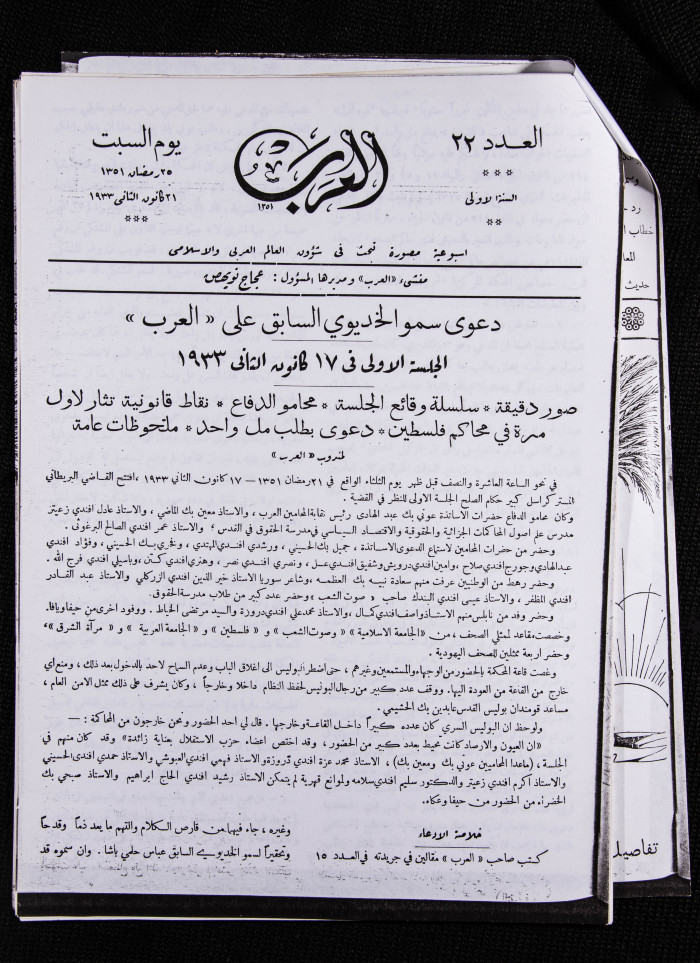 العدد ٢٢
* * *
السنة الاولى
* *
العرب
١٣٥١
يوم السبت
٢٥ رمضان ١٣٥١
٢١ كانون الثانى ١٩٣٣
***
اسبوعية مصورة تبحث فى شؤون العالم العربى والاسلامى
منشىء «العرب» ومديرها المسؤول : عجاج نويهض
دعوى سمو الخديوي السابق على « العرب »
الجلسة الاولى فى ١٧ كانون الثانى ١٩٣٣
صور دقيقة * سلسلة وقائع الجلسة * محامو الدفاع * نقاط قانونية تثار لاول
مرة في محاكم فلسطين * دعوى بطلب مل واحد * ملحوظات عامة
لمندوب «العرب»
في نحو الساعة العاشرة والنصف قبل ظهر يوم الثلاثاء الواقع في ٢١ رمضان ١٣٥١ — ١٧ كانون الثاني ١٩٣٣ ،افتتح القاضي البريطاني
المستر كراسل كبير حكام الصلح الجلسة الاولى للنظر في القضية .
وكان محامو الدفاع حضرات الاساتذة عوني بك عبد الهادى رئيس نقابة المحامين العرب ، والاستاذ معين بك الماضي ، والاستاذ عادل افندي زعيتر
مدرس علم اصول المحاكمات الجزائية والحقوقية والاقتصاد السياسي في مدرسة الحقوق في القدس ، والاستاذ عمر افندي الصالح البرغوثى .
وحضر من حضرات المحامين لاستماع الدعوى الاساتذة ، جميل بك الحسيني ، ورشدي افندي المهتدي ، وفخري بك الحسيني ، وفؤاد افندي
عبدالهادي وجورج افندي صلاح ، وامين افندي درويش وشفيق افندي عسل ، ونصري افندي نصر ، وهنري افندي كتن ، وباسيلي افندي فرج الله .
وحضر رهط من الوطنيين عرفت منهم سعادة نبيه بك العظمه ، وشاعر سوريا الاستاذ خير الدين افندي الزركلي والاستاذ عبد القادر
افندي المظفر ، والاستاذ عيسى افندي البندك صاحب « صوت الشعب » وحضر عدد كبير من طلاب مدرسة الحقوق.
وحضر وفد من نابلس منهم الاستاذ واصف افندي كمال ، والاستاذ محمد علي افندي دروزة والسيد مرتضى الخياط . ووفود اخرى من حيفا ويافا.
وخصصت مقاعد لممثلي الصحف ، من « الجامعة الاسلامية » « وصوت الشعب » و « فلسطين » و « الجامعة العربية » و « مرآة الشرق »
وحضر اربعة ممثلين للصحف اليهودية .
وغصت قاعة المحكمة بالحضور من الوجهاء والمستمعين وغيرهم ، حتى اضطر البوليس الى اغلاق الباب وعدم السماح لاحد بالدخول بعد ذلك ، ومنع اي
خارج من القاعة من العودة اليها. ووقف عدد كبير من رجال البوليس لحفظ النظام داخلا وخارجا ، وكان يشرف على ذلك ممثل الامن العام ،
مساعد قومندان بوليس القدس عابدين بك الحشيمي .
ولوحظ ان البوليس السري كان عدده كبيراً داخل القاعة وخارجها . قال لي احد الحضور ونحن خارجون من المحاكمة : —
«ان العيون والارصاد كانت تحيط بعدد كبير من الحضور ، وقد اختص اعضاء حزب الاستقلال بعناية زائدة» وقد كان منهم في
الجلسة ، (ماعدا المحاميين عوني بك ومعين بك) ، الاستاذ محمد عزة افندي دروزة والاستاذ فهمي افندي العبوشي والاستاذ حمدي افندي الحسيني
والاستاذ اكرم افندي زعيتر والدكتور سليم افندي سلامه ولموانع قهرية لم يتمكن الاستاذ رشيد افندي الحاج ابراهيم والاستاذ صبحي بك
الخضراء من الحضور من حيفا وعكاء.
خلاصة الادعاء
كتب صاحب « العرب » مقالين في جريدته في العدد ١٥
وغيره ، جاء فيهما من قارص الكلام والتهم ما يعد ذماً وقدحاً
وتحقيراً لسمو الخديوي السابق عباس حلمي باشا. وان سموه قد
خطاب
حديث
تفاصيل